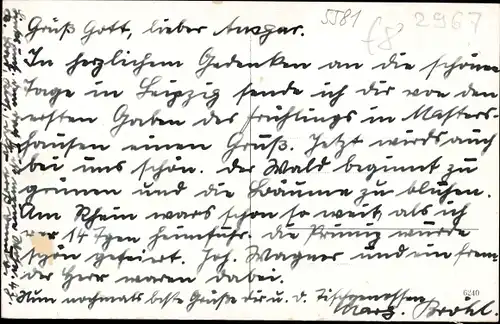 5581
£8
2967
Grüß Gott, lieber Ansgar.
In herzlichem Gedenken an die schönen
Tage in Leipzig sende ich dir von den
ersten Gaben des Frühlings in Masters-
hausen einen Gruß. Jetzt wirds auch
bei uns schön. der Wald beginnt zu
grünen und die Bäume zu blühen.
Am Rhein wars schon so weit, als ich
vor 14 Tgen heimfuhr. die Primiz wurde
schön gefeiert. Joh. Wagner und ein frem-
der Herr waren dabei.
Nun nochmals beste Grüße dir u. d. Tischgenossen
6240
Bröhl.